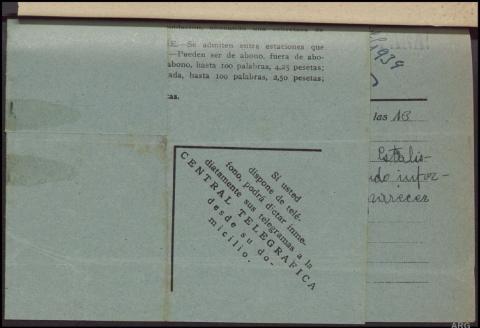 E.—Se admiten entre estaciones que
.—Pueden ser de abono, fuera de abo-
abono, hasta 100 palabras, 4,25 pesetas;
ada, hasta 100 palabras, 2,50 pesetas;
tas.
1939
las 13
Si usted
dispone de telé-
fono, podrá dictar inme-
diatamente sus telegramas a la
CENTRAL TELEGRAFICA
desde su do-
micilio.
Estalis-
ndo infor-
parecer
ARG